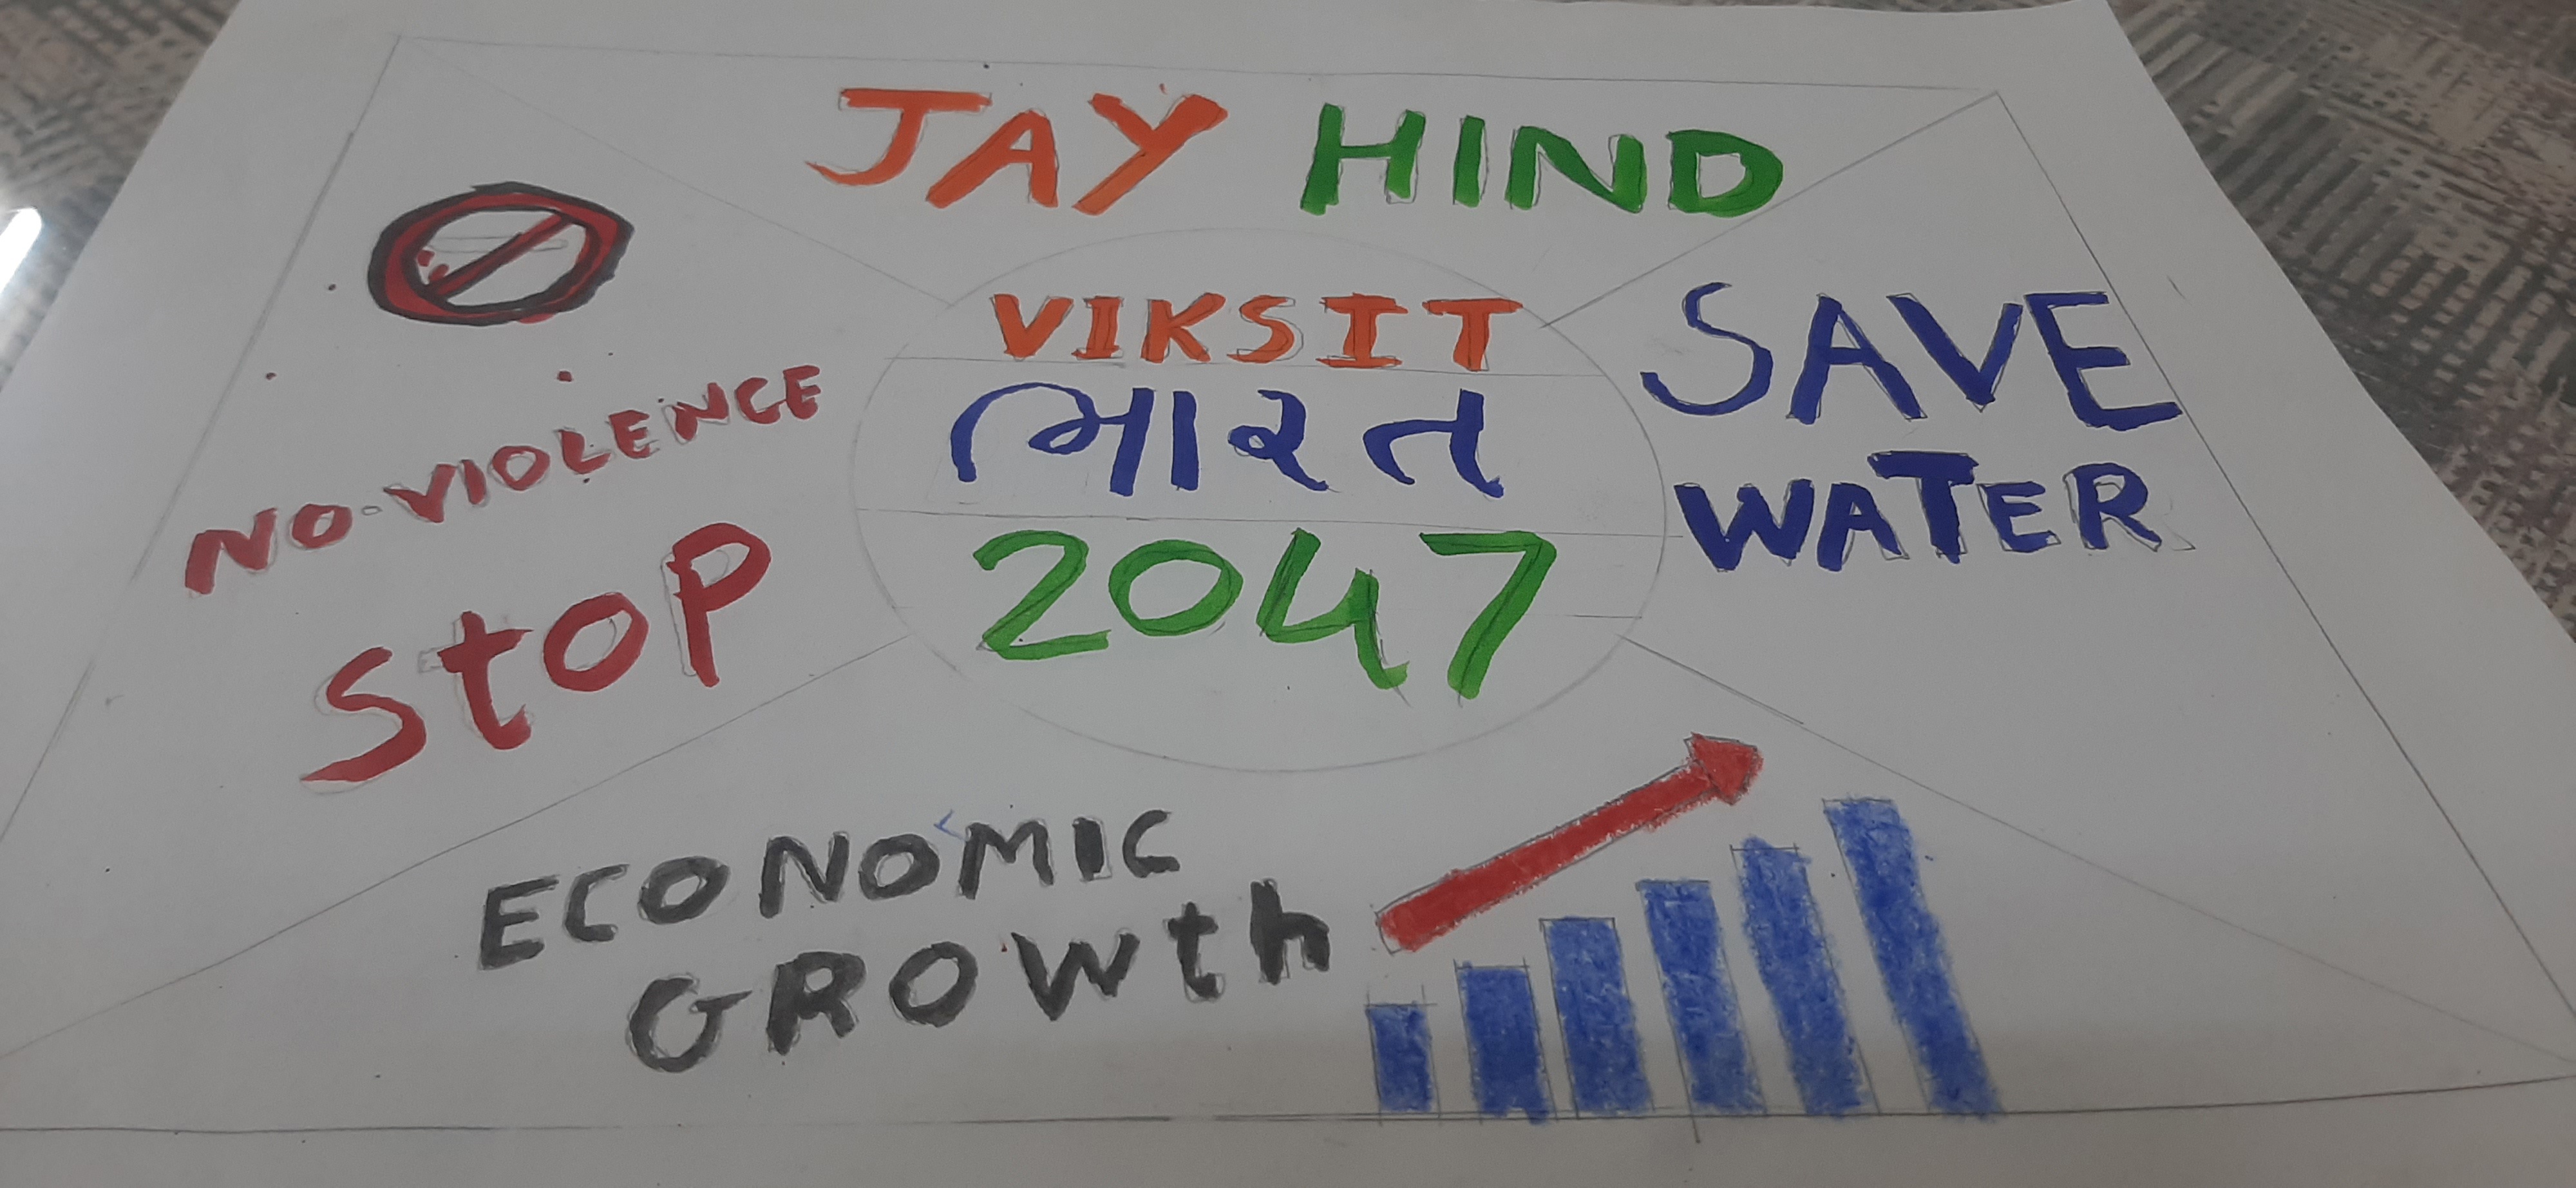 JAY HIND
VIKSIT
ભારત
2047
NO-VIOLENCE
StOP
SAVE
WATER
ECONOMIC
GROWth